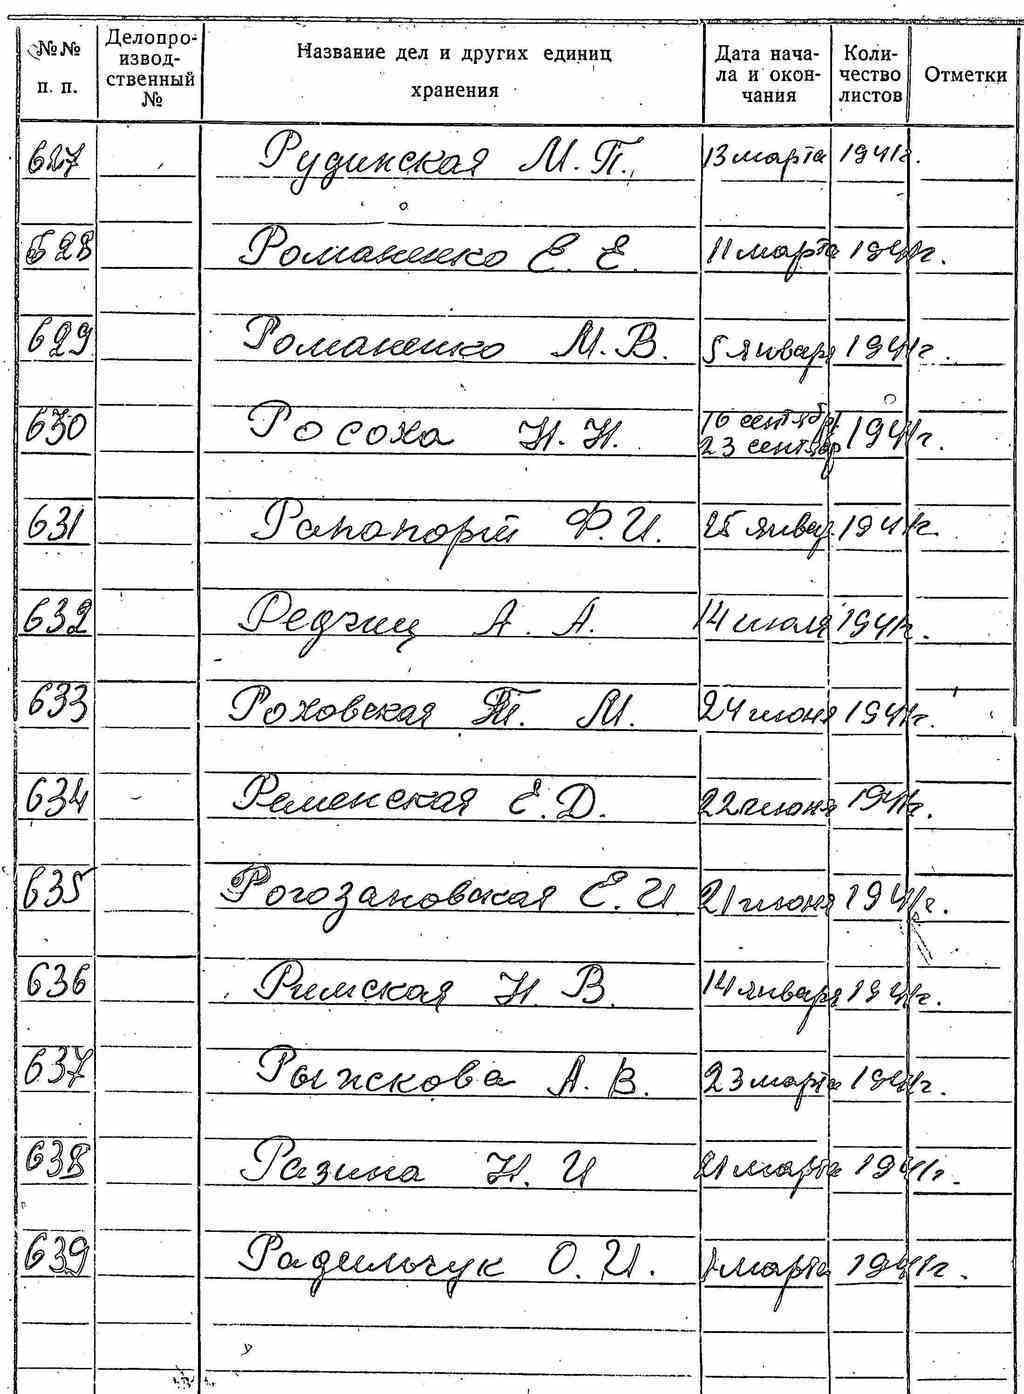 №№ п. п. Делопро-извод-ственный № Название дел и других единиц хранения Дата нача-ла и окон-чания Коли-чество листов Отметки
627 Рудинская М. П. 13 марта 1941г.
628 Романенко Е. Е. 11 марта 1941г.
629 Романенко М. В. 5 января 1941г.
630 Росоха Н. Н. 16 сентябр. 23 сентябр 1941г.
631 Рапапорт Ф. И. 25 январ. 1941г.
632 А. А. 14 июля 1941г.
633 Роховская Т. М. 24 июня 1941г.
634 Раменская Е. Д. 22 июня 1941г.
635 Рогозановская Е. И 21 июня 1941г.
636 Римская Н. В. 14 января 1941г.
637 Рыжскова А. В. 23 марта 1941г.
638 Разина Н. И 21 марта 1941г.
639 Радильчук О. И. марта 1941г.